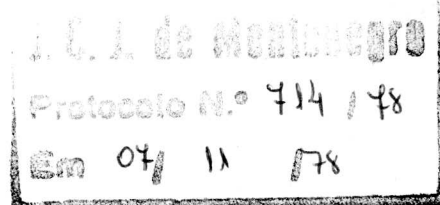 J. C. J. de Montenegro
Protocolo N.º 714 / 78
Em 07/ 11 /78